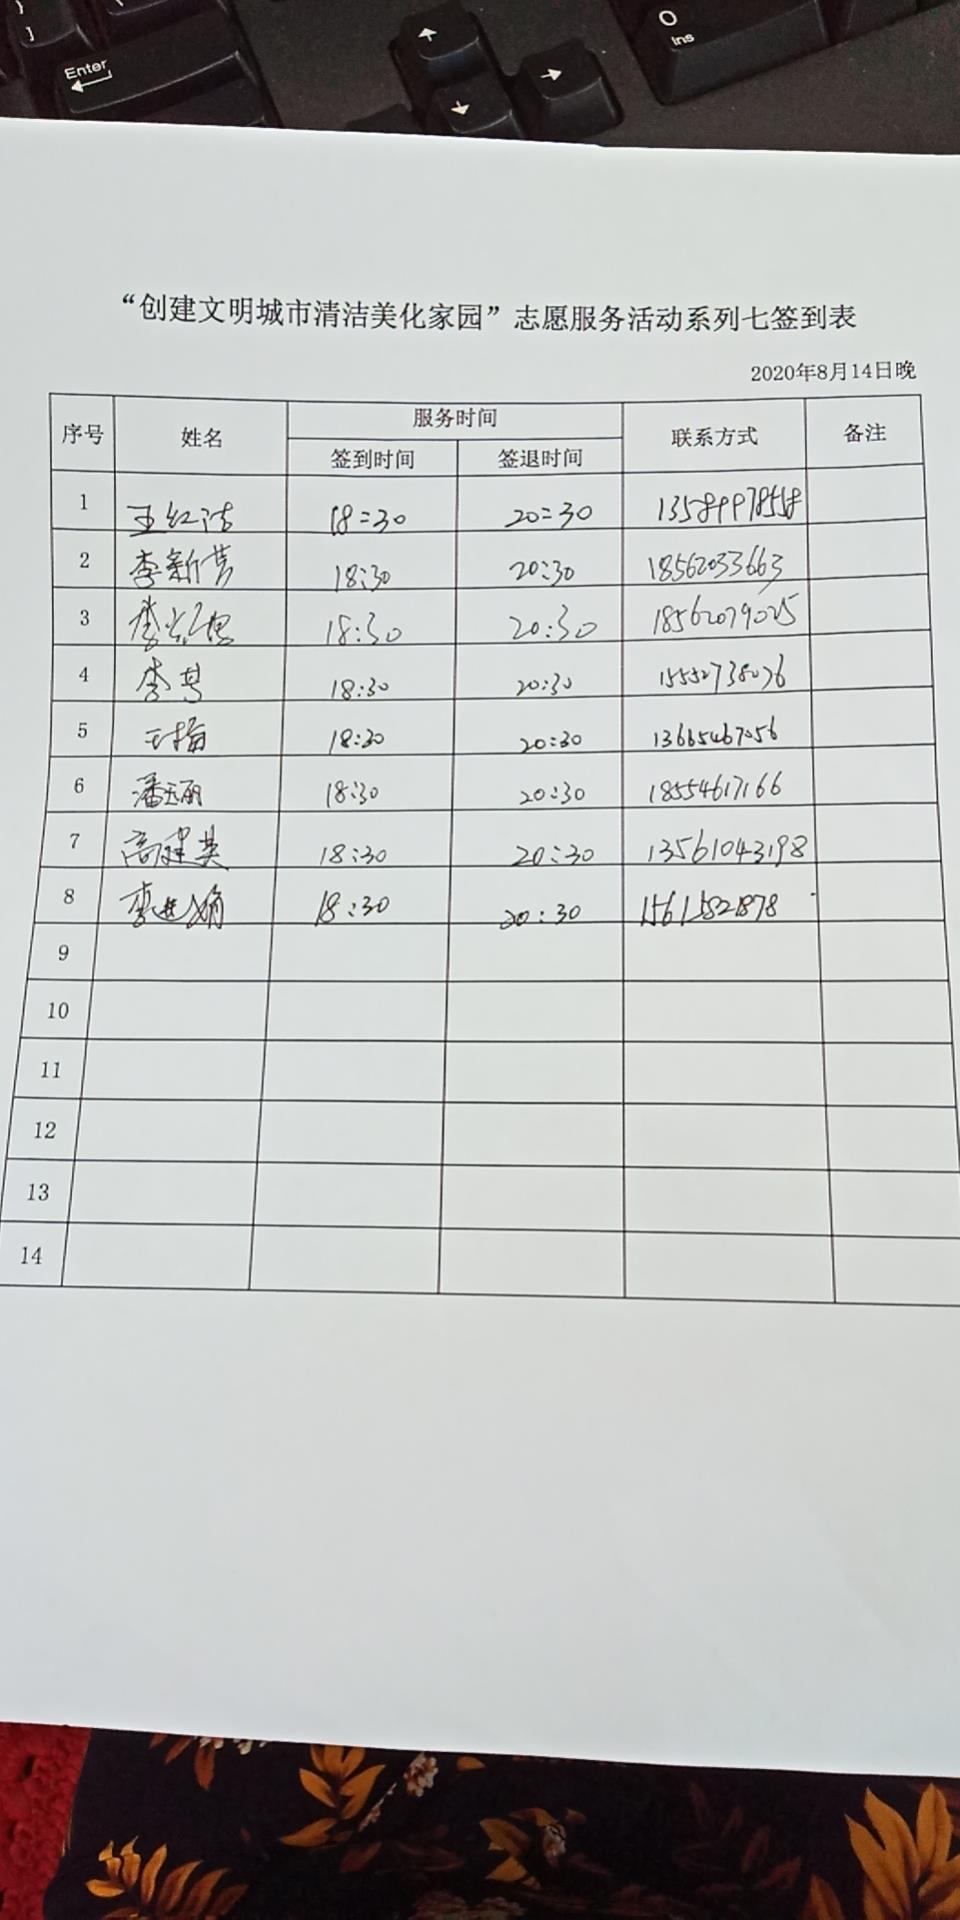 Enter
Ins
“创建文明城市清洁美化家园”志愿服务活动系列七签到表
2020年8月14日晚
序号 姓名 服务时间 联系方式 备注
签到时间 签退时间
1 王红洁 18:30 20:30
2 李新营 18:30 20:30 18562033663
3 18:30 20:30 18562079025
4 18:30 20:30 15552738026
5 王梅 18:30 20:30
6 潘玉丽 18:30 20:30 18554617166
7 高建英 18:30 20:30 13561043198
8 18:30 20:30
9
10
11
12
13
14